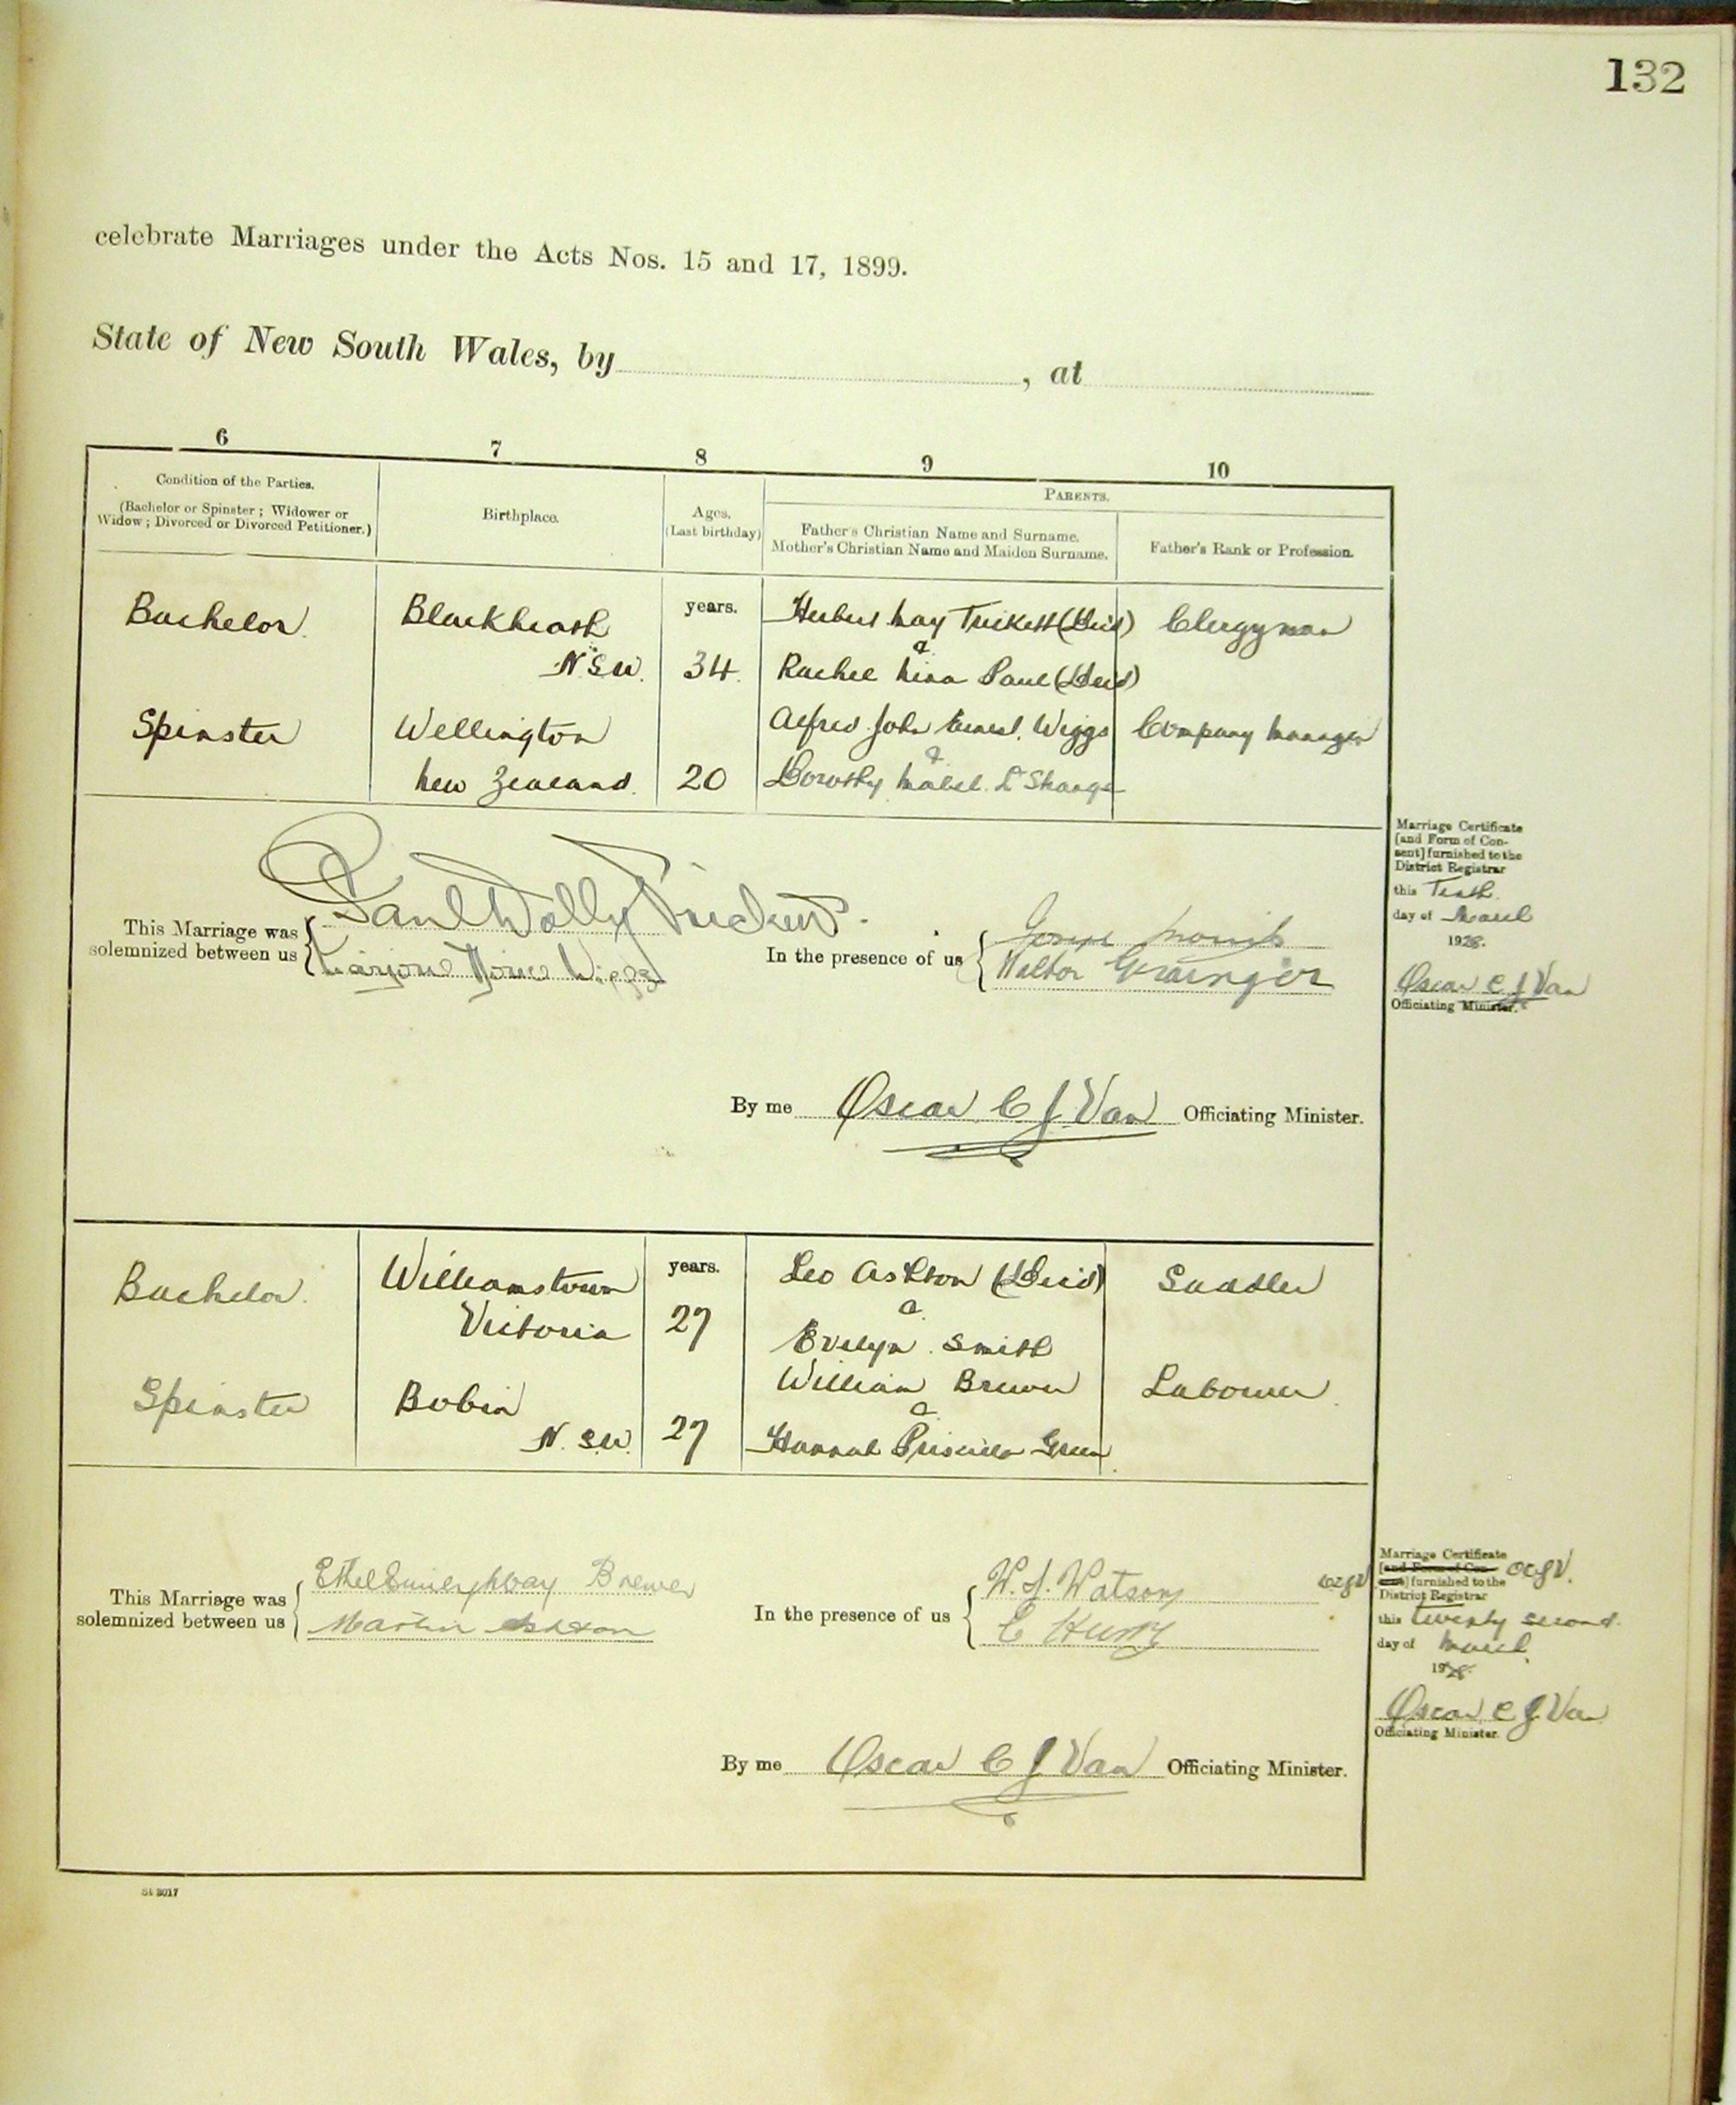 132
celebrate Marriages under the Acts Nos. 15 and 17, 1899.
State of New South Wales, by , at
6 7 8 9 10
Condition of the Parties.
(Bachelor or Spinster ; Widower or
Widow ; Divorced or Divorced Petitioner.)
Birthplace.
Ages.
(Last birthday)
PARENTS.
Father's Christian Name and Surname.
Mother's Christian Name and Maiden Surname.
Father's Rank or Profession.
Bachelor Blackheath years. Trickett (Decd) Clergyman
N.S.W. 34 Rachel Paul (Decd)
Spinster Wellington Alfred John Ernest Wiggs Company Manager
New Zealand 20 Dorothy Mabel
This Marriage was
solemnized between us
Paul Wolly Trickett
Wiggs
In the presence of us
Walter Grainger
Marriage Certificate
[and Form of Con-
sent] furnished to the
District Registrar
this Tenth
day of March
1928.
Oscar C J Van
Officiating Minister.
By me Oscar C J Van Officiating Minister.
Bachelor Williamstown years. Leo Ashton (Decd) Saddler
Victoria 27 &
Evelyn Smith
Spinster Bobin William Brewer Labourer
&
N.S.W. 27 Hannah Priscilla Green
This Marriage was
solemnized between us
Ethel May Brewer
Martin Ashton
In the presence of us
W. J. Watson
E
Marriage Certificate
[and Form of Con-
sent] furnished to the
District Registrar
OCJV.
this twenty second
day of March
1928
Oscar C J Van
Officiating Minister.
By me Oscar C J Van Officiating Minister.
St 3017